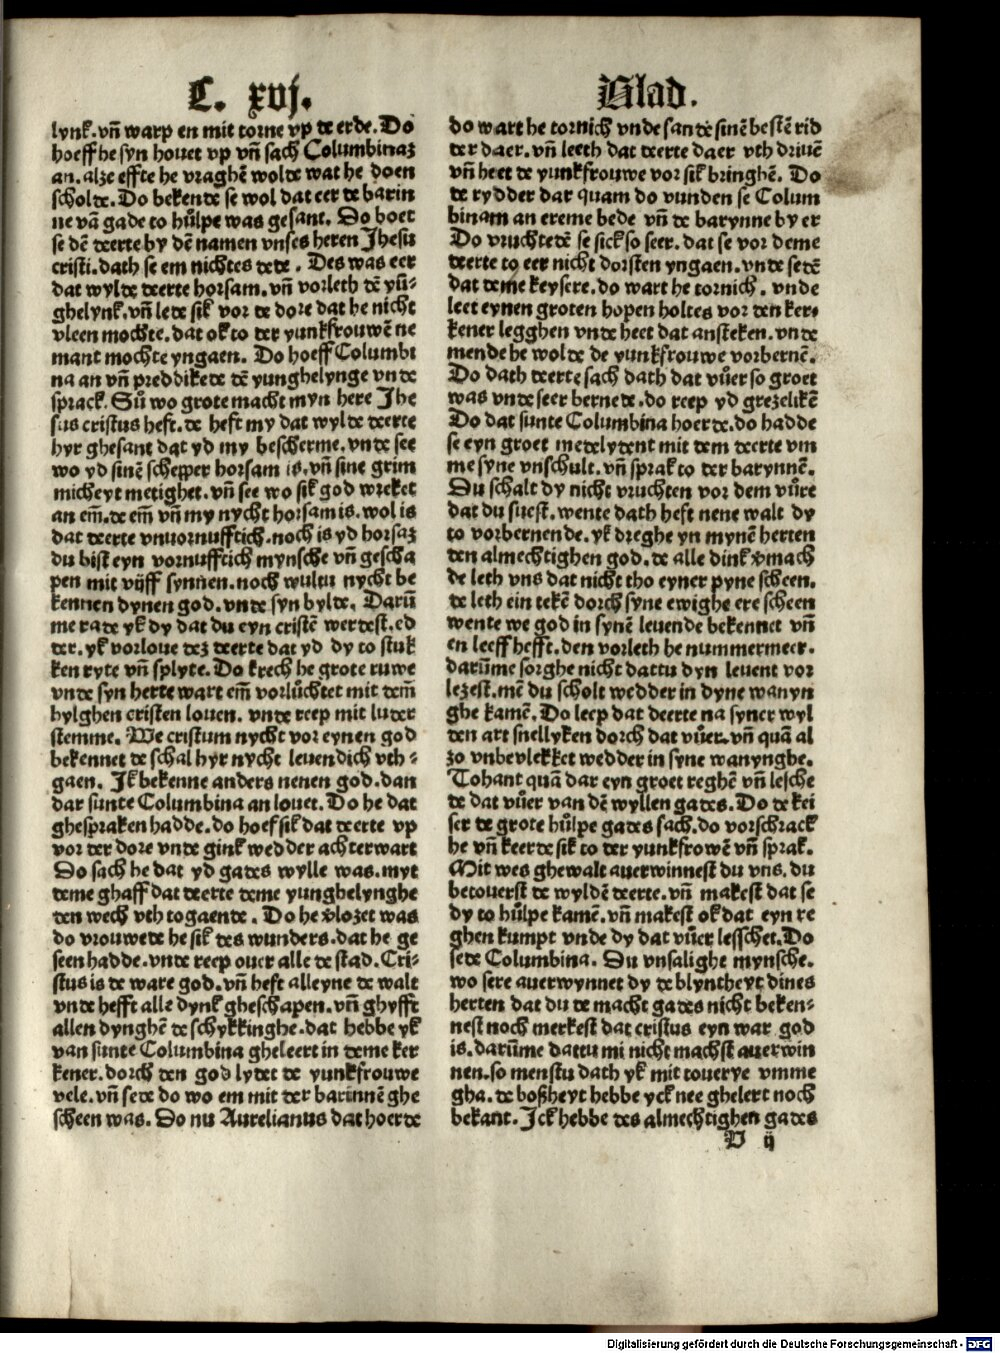 C. xvj.
Blad.
lynk. vñ warp en mit torne vp de erde. Do
hoeff he syn houet vp vñ sach Columbinaꝫ
an. alze effte he vraghē wolde wat he doen
scholde. Do bekende se wol dat eer de barin
ne vā gade to hůlpe was gesant. Do boet
se dē deerte by dē namen vnses heren Jhesu
cristi. dath se em nichtes dede. Des was eer
dat wylde deerte horsam. vñ vorleth dē yū-
ghelynk. vñ lede sik vor de dore dat he nicht
vleen mochte. dat ok to der yunkfrouwē ne
mant mochte yngaen. Do hoeff Columbi
na an vñ preddikede dē yunghelynge vnde
sprack. Sů wo grote macht myn here Jhe
sus cristus heft. de heft my dat wylde deerte
hyr ghesant dat yd my bescherme. vnde see
wo yd sinē schepper horsam is. vñ sine grim
micheyt metighet. vñ see wo sik god wreket
an em̄. de em̄ vñ my nycht horsam is. wol is
dat deerte vnuornufftich. noch is yd horsaꝫ
du bist eyn vornufftich mynsche vñ gescha
pen mit vijff synnen. noch wultu nycht be
kennen dynen god. vnde syn bylde. Darū
me rade yk dy dat du eyn cristē werdest. ed
der. yk vorloue deꝫ deerte dat yd dy to stuk
ken ryte vñ splyte. Do krech he grote ruwe
vnde syn herte wart em̄ vorlůchtet mit dem̄
hylghen cristen louen. vnde reep mit luder
stemme. We cristum nycht vor eynen god
bekennet de schal hyr nycht leuendich vth-
gaen. Jk bekenne anders nenen god. dan
dar sunte Columbina an louet. Do he dat
ghespraken hadde. do hoef sik dat deerte vp
vor der dore vnde gink wedder achterwart
Do sach he dat yd gades wylle was. myt
deme ghaff dat deerte deme yunghelynghe
den wech vth togaende. Do he vlozet was
do vrouwede he sik des wunders. dat he ge
seen hadde. vnde reep ouer alle de stad. Cri-
stus is de ware god. vñ heft alleyne de walt
vnde hefft alle dynk gheschapen. vñ ghyfft
allen dynghē de schykkinghe. dat hebbe yk
van sunte Columbina gheleert in deme ker
kener. dorch den god lydet de yunkfrouwe
vele. vñ sede do wo em mit der barinnē ghe
scheen was. Do nu Aurelianus dat hoerde
do wart he tornich vnde sande sinē bestē rid
der daer. vñ leeth dat deerte daer vth driuē
vñ heet de yunkfrouwe vor sik bringhē. Do
de rydder dar quam do vunden se Colum
binam an ereme bede vñ de barynne by er
Do vruchtedē se sick so seer. dat se vor deme
deerte to eer nicht dorsten yngaen. vnde sedē
dat deme keysere. do wart he tornich. vnde
leet eynen groten hopen holtes vor den ker-
kener legghen vnde heet dat ansteken. vnde
mende he wolde de yunkfrouwe vorbernē.
Do dath deerte sach dath dat vůer so groet
was vnde seer bernede. do reep yd grezelikē
Do dat sunte Columbina hoerde. do hadde
se eyn groet medelydent mit dem deerte vm
me syne vnschult. vñ sprak to der barynnē.
Du schalt dy nicht vruchten vor dem vůre
dat du suest. wente dath heft nene walt dy
to vorbernende. yk dreghe yn mynē herten
den almechtighen god. de alle dink vmach
de leth vns dat nicht tho eyner pyne scheen.
de leth ein tekē dorch syne ewighe ere scheen
wente we god in synē leuende bekennet vñ
en leeff hefft. den vorleth he nummermeer.
darūme sorghe nicht dattu dyn leuent vor
lezest. mē du scholt wedder in dyne wanyn
ghe kamē. Do leep dat deerte na syner wyl
den art snellyken dorch dat vůer. vñ quā al
zo vnbevlekket wedder in syne wanynghe.
Tohant quā dar eyn groet reghē vñ lesche
de dat vůer van dē wyllen gades. Do de kei
ser de grote hůlpe gades sach. do vorschrack
he vñ keerde sik to der yunkfrowē vñ sprak.
Mit wes ghewalt auerwinnest du vns. du
betouerst de wyldē deerte. vñ makest dat se
dy to hůlpe kamē. vñ makest ok dat eyn re
ghen kumpt vnde dy dat vůer lesschet. Do
sede Columbina. Du vnsalighe mynsche.
wo sere auerwynnet dy de blyntheyt dines
herten dat du de macht gades nicht beken-
nest noch merkest dat cristus eyn war god
is. darūme dattu mi nicht machst auerwin
nen. so menstu dath yk mit touerye vmme
gha. de boßheyt hebbe yck nee ghelert noch
bekant. Jck hebbe des almechtighen gades
V ij
Digitalisierung gefördert durch die Deutsche Forschungsgemeinschaft - DFG